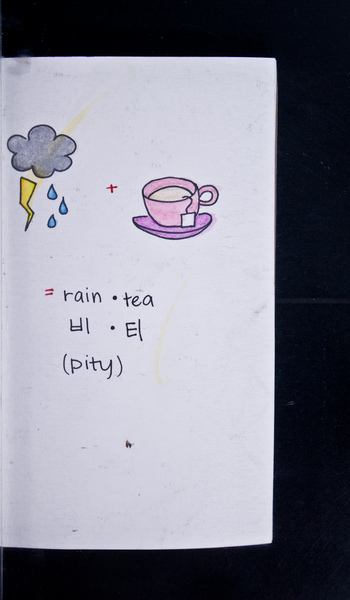 +
= rain • tea
비 • 티
(pity)